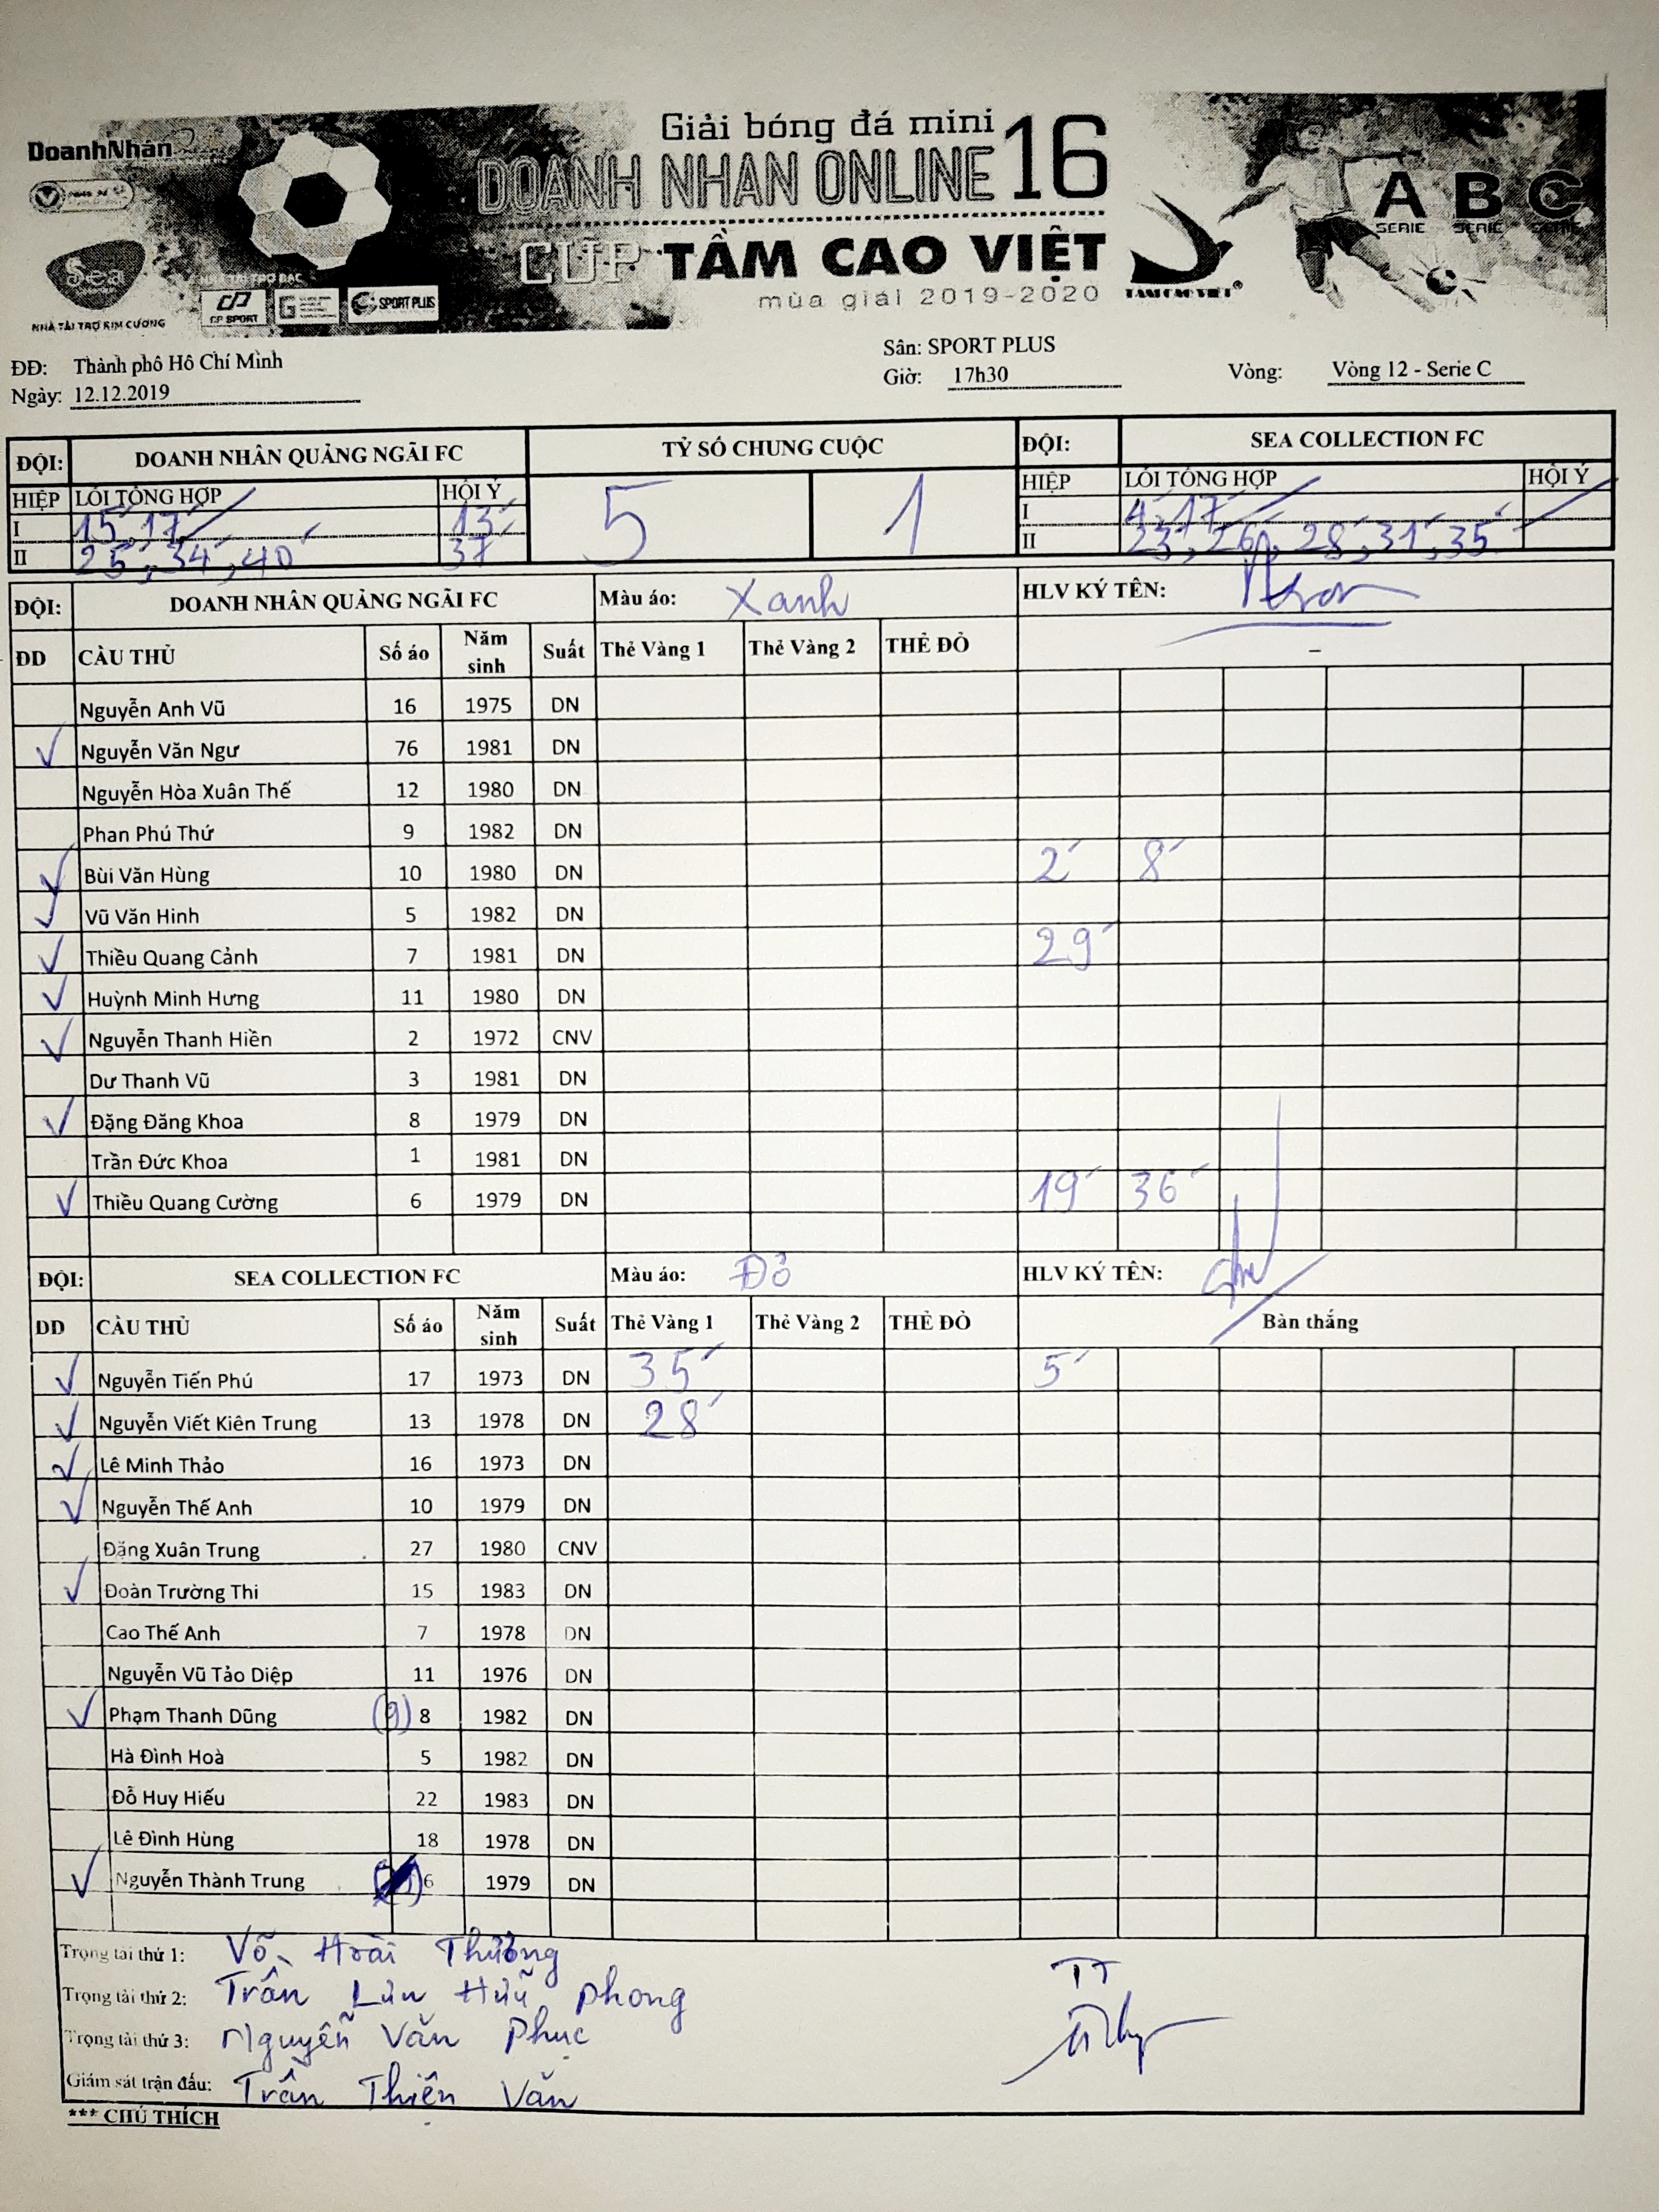 Giải bóng đá mini
DoanhNhân
DOANH NHAN ONLINE 16
A B C
SERIE SERIE SERIE
CUP TẦM CAO VIỆT
Sea
mùa giải 2019-2020
TAM CAO VIET®
CP SPORT SPORT PLUS
NHÀ TÀI TRỢ KIM CƯƠNG
ĐĐ: Thành phô Hô Chí Minh Sân: SPORT PLUS
Ngày: 12.12.2019 Giờ: 17h30 Vòng: Vòng 12 - Serie C
ĐỘI: DOANH NHÂN QUẢNG NGÃI FC TỶ SỐ CHUNG CUỘC ĐỘI: SEA COLLECTION FC
HIỆP LỖI TỔNG HỢP HỘI Ý 5 1 HIỆP LỖI TỔNG HỢP HỘI Ý
I 15', 17' 13' I 4', 17'
II 25', 34', 40' 37' II 23', 26', 28', 31', 35'
ĐỘI: DOANH NHÂN QUẢNG NGÃI FC Màu áo: Xanh HLV KÝ TÊN:
ĐD CẦU THỦ Số áo Năm sinh Suất Thẻ Vàng 1 Thẻ Vàng 2 THẺ ĐỎ –
Nguyễn Anh Vũ 16 1975 DN
✓ Nguyễn Văn Ngư 76 1981 DN
Nguyễn Hòa Xuân Thế 12 1980 DN
Phan Phú Thứ 9 1982 DN
✓ Bùi Văn Hùng 10 1980 DN 2' 8'
✓ Vũ Văn Hinh 5 1982 DN
✓ Thiều Quang Cảnh 7 1981 DN 29'
✓ Huỳnh Minh Hưng 11 1980 DN
✓ Nguyễn Thanh Hiền 2 1972 CNV
Dư Thanh Vũ 3 1981 DN
✓ Đặng Đăng Khoa 8 1979 DN
Trần Đức Khoa 1 1981 DN
✓ Thiều Quang Cường 6 1979 DN 19' 36'
ĐỘI: SEA COLLECTION FC Màu áo: Đỏ HLV KÝ TÊN:
DD CẦU THỦ Số áo Năm sinh Suất Thẻ Vàng 1 Thẻ Vàng 2 THẺ ĐỎ Bàn thắng
✓ Nguyễn Tiến Phú 17 1973 DN 35' 5'
✓ Nguyễn Viết Kiên Trung 13 1978 DN 28'
✓ Lê Minh Thảo 16 1973 DN
✓ Nguyễn Thế Anh 10 1979 DN
Đặng Xuân Trung 27 1980 CNV
✓ Đoàn Trường Thi 15 1983 DN
Cao Thế Anh 7 1978 DN
Nguyễn Vũ Tảo Diệp 11 1976 DN
✓ Phạm Thanh Dũng (9) 8 1982 DN
Hà Đình Hoà 5 1982 DN
Đỗ Huy Hiếu 22 1983 DN
Lê Đình Hùng 18 1978 DN
✓ Nguyễn Thành Trung 6 1979 DN
Trọng tài thứ 1: Võ Hoài Thưởng
Trọng tài thứ 2: Trần Lưu Hữu Phong TT
Trọng tài thứ 3: Nguyễn Văn Phục
Giám sát trận đấu: Trần Thiện Văn
*** CHÚ THÍCH